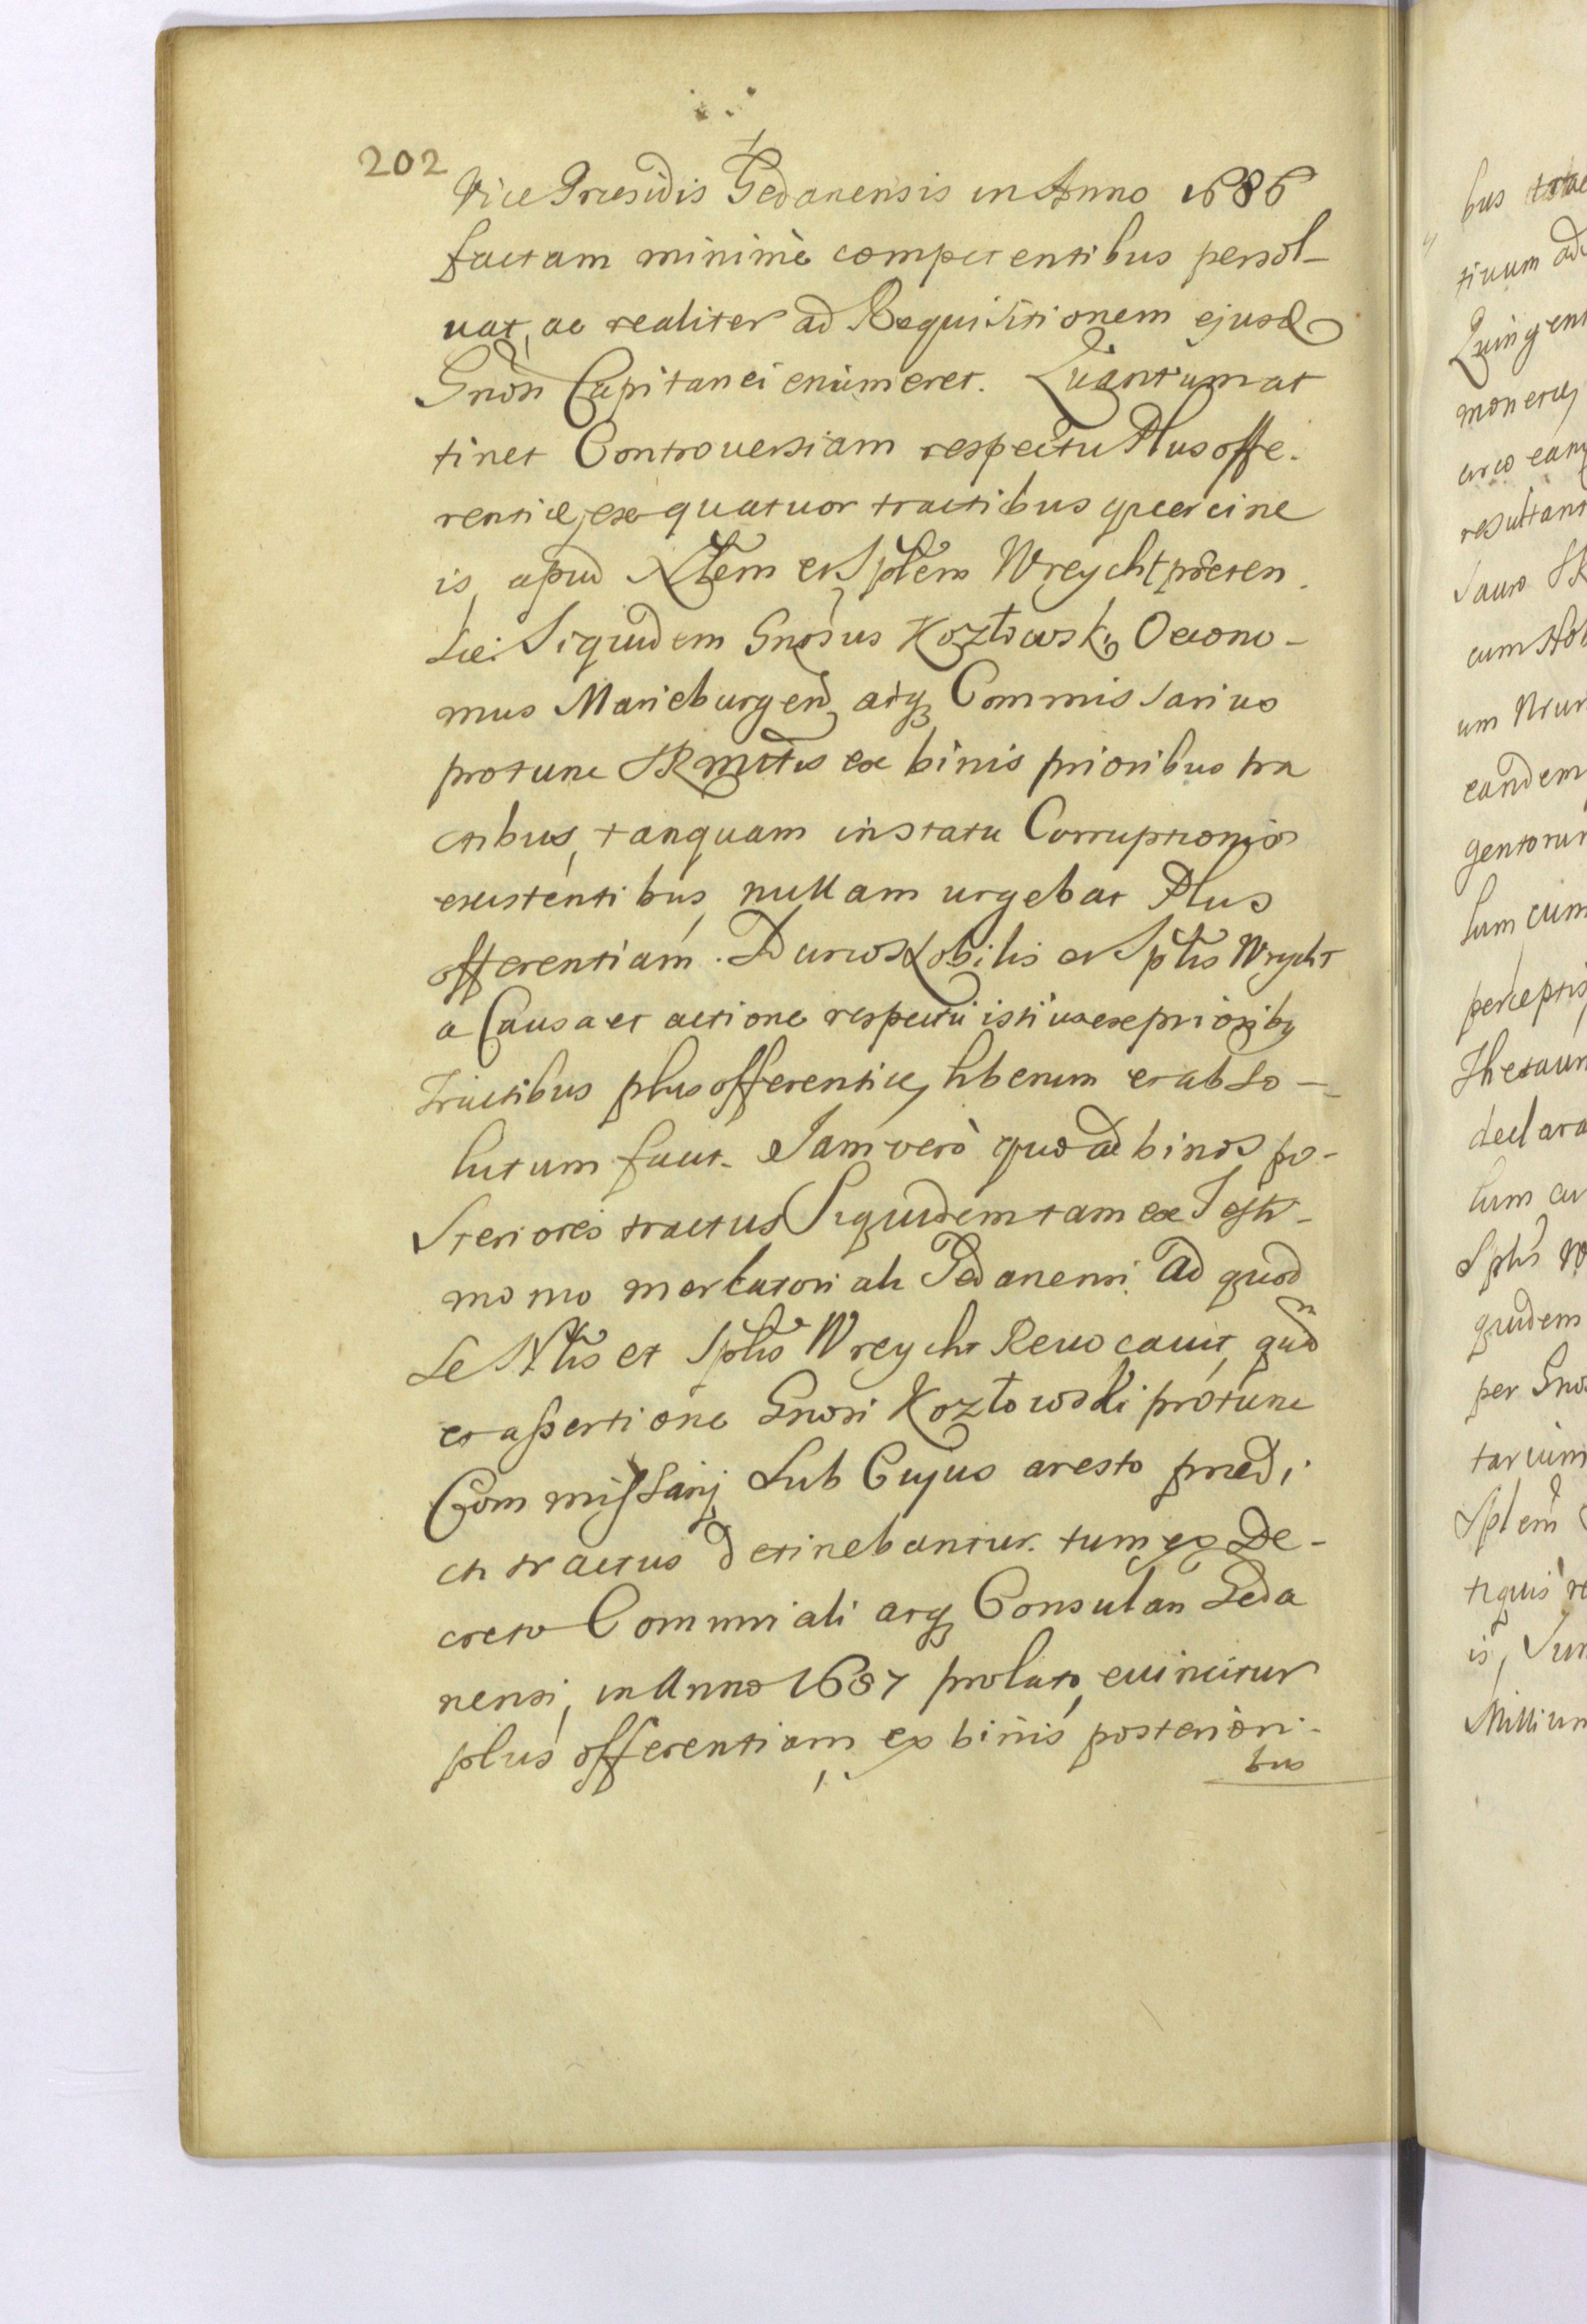 202
Vice Præsidis Gedanensis in Anno 1686
factam minimè competentibus persol-
uat, ac realiter ad Requisitionem ejusd
Gnosi Capitanei enumeret. Quantum at
tinet Controuersiam respectu Plus offe-
rentiæ, ex quatuor tractibus quercine
is, apud Nblem et Splem Wreycht præten
sæ: Siquidem Gnosus Kozłowski Oecono-
mus Marieburgen atq Commissarius
protunc SRMttis ex binis prioribus tra
ctibus, tanquam in statu Corruptionis
existentibus, nullam urgebat Plus
offerentiam. Nobilis et Splis Wrycht
a Causa et actione respectu istius ex prioribq
tractibus plus offerentiæ, liberum et abso-
lutum facit. Jam verò quoad binos po-
steriores tractus Siquidem tam ex Testi-
monio mercatoriali Gedanensi. Ad quod
se Nblis et Splis Wreycht Reuocauit, quam
et assertione Gnosi Kozłowski protunc
Commissarij Sub Cujus aresto prædi
cti tractus detinebantur. tum ex De-
creto Commiali atq Consulari Geda
nensi, in Anno 1687 prolato, euincitur
plus offerentiam, ex binis posteriori-
bus
bus
tiuum
Quingen
monetæ,
resultant
cum
um
eandem
gentorum
perceptis
Thesaur
declara
Splis
quidem
per Gnos
Splem
is,
Millium